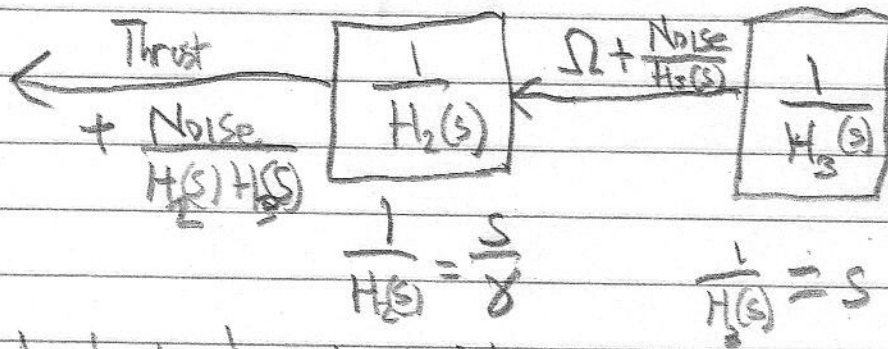 Thrust
+ Noise / H₂(s) H₃(s)
1 / H₂(s)
Ω + Noise / H₃(s)
1 / H₃(s)
1 / H₂(s) = s / γ
1 / H₃(s) = s